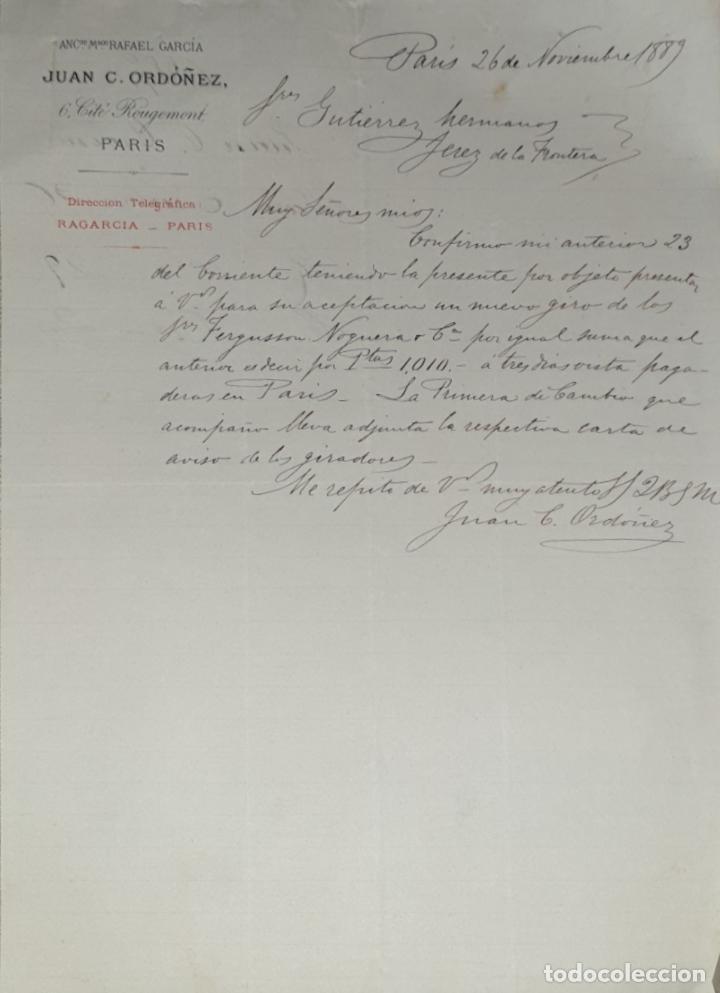 ANCNE MSON RAFAEL GARCÍA
JUAN C. ORDÓÑEZ,
6, Cité Rougemont
PARIS
Direccion Telegráfica:
RAGARCIA - PARIS
Paris 26 de Noviembre 1889
Sres Gutiérrez hermanos
Jerez de la Frontera
Muy Señores mios:
Confirmo mi anterior 23
del Corriente teniendo la presente por objeto presentar
á Vs para su aceptacion un nuevo giro de los
Sres Fergusson Noguera & Ca por igual suma que el
anterior es decir por Ptas 1,010.- á tres dias vista paga-
deras en Paris - La Primera de Cambio que
acompaño lleva adjunta la respectiva carta de
aviso de los giradores -
Me repito de Vs muy atento SS Q B S M
Juan C. Ordóñez
todocoleccion